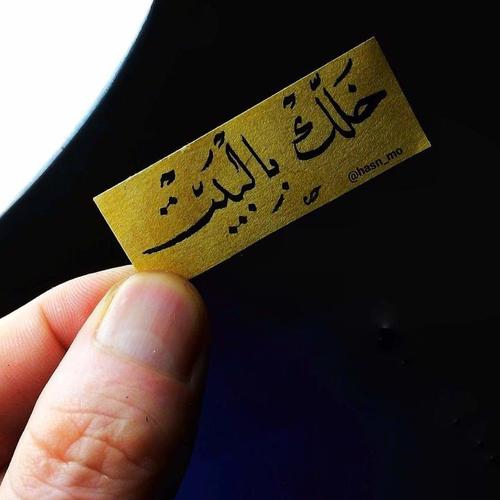 خَلَّكْ بِالْبَيَتْ
@hasn_mo